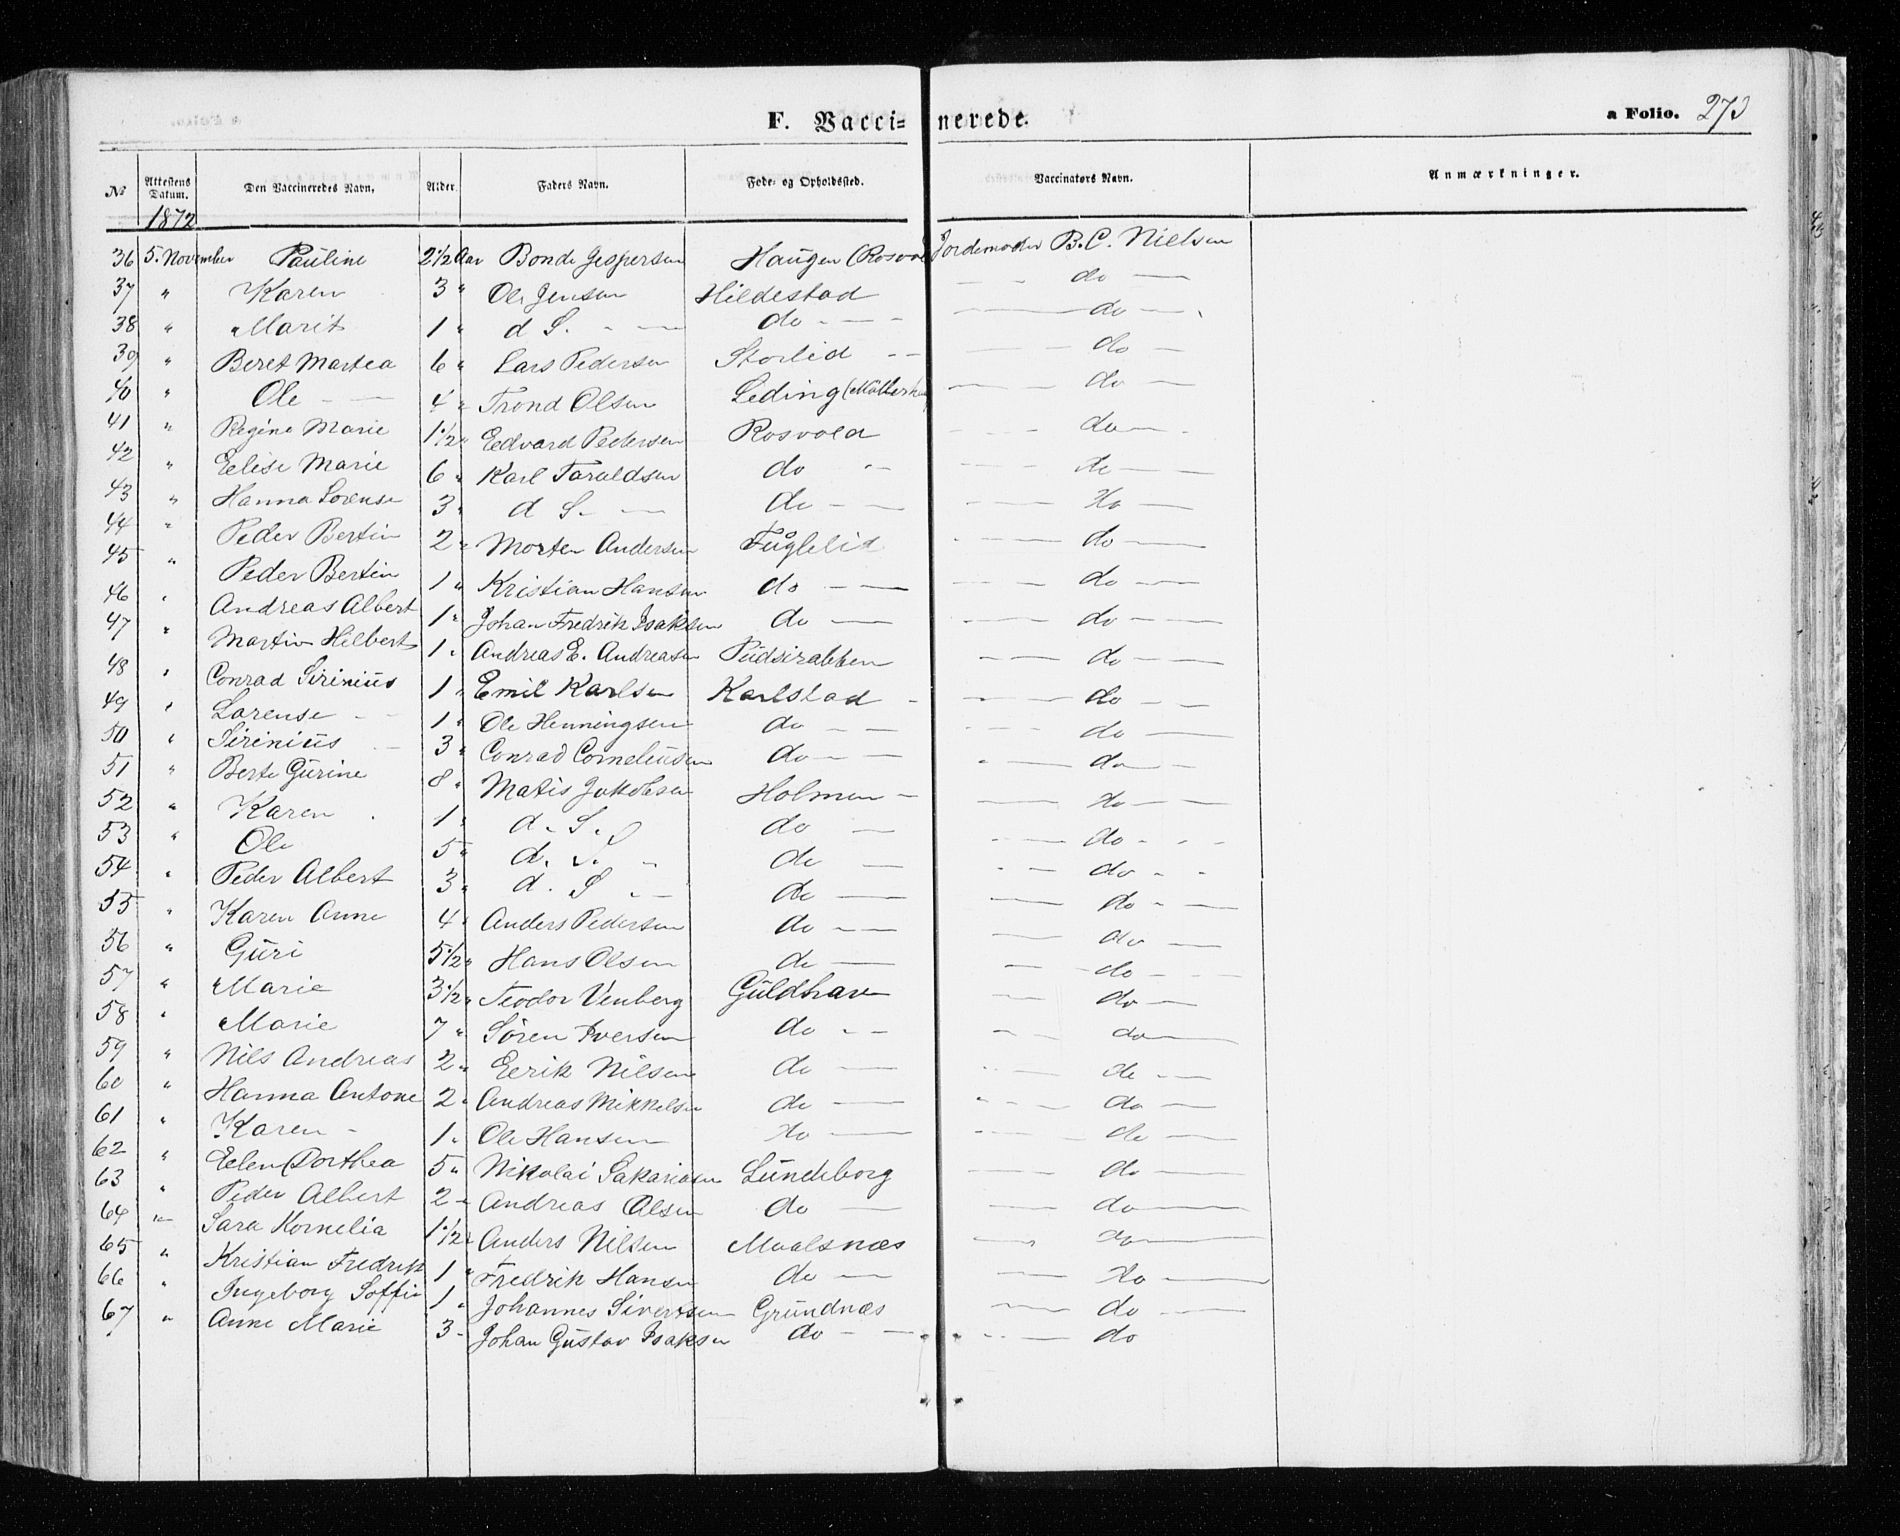 F. Vaccinerede.
a Folio. 273
№ | Attestens Datum. | Den Vaccineredes Navn. | Alder. | Faders Navn. | Føde- og Opholdssted. | Vaccinators Navn. | Anmærkninger.
1872
36 | 5. November | Pauline | 2 1/2 Aar | Bonde Jespersen | Haugen (Rosvol | Jordemoder B. C. Nielsen
37 | " | Karen | 3 " | Ole Jensen | Hildestad | do
38 | " | Marit | 1 " | d S. | do | do
39 | " | Beret Martea | 6 " | Lars Pedersen | Storlid | do
40 | " | Ole | 4 " | Trond Olsen | Leding | do
41 | " | Regine Marie | 1 1/2 " | Eedvard Pedersen | Rosvold | do
42 | " | Eelise Marie | 6 " | Karl Taraldsen | do | do
43 | " | Hanna Lorense | 3 " | d S. | do | do
44 | " | Peder Bertin | 2 " | Morten Andersen | Fuglelid | do
45 | " | Peder Bertin | 1 " | Kristian Hansen | do | do
46 | " | Andreas Albert | 1 " | Johan Fredrik Isaksen | do | do
47 | " | Martin Hilbert | 1 " | Andreas E. Andreasen | Pudsirabben | do
48 | " | Conrad Sirinius | 1 " | Emil Karlsen | Karlstad | do
49 | " | Lorense | 1 " | Ole Henningsen | do | do
50 | " | Sirinius | 3 " | Conrad Corneliusen | do | do
51 | " | Berte Gurine | 8 " | Matis Jakobsen | Holmen | do
52 | " | Karen | 1 " | d. S. | do | do
53 | " | Ole | 5 " | d. S. | do | do
54 | " | Peder Albert | 3 " | d. S | do | do
55 | " | Karen Anne | 4 " | Anders Pedersen | do | do
56 | " | Guri | 5 1/2 " | Hans Olsen | do | do
57 | " | Marie | 3 1/2 " | Teodor Venberg | Guldhav | do
58 | " | Marie | 7 " | Søren Iversen | do | do
59 | " | Nils Andreas | 2 " | Eerik Nilsen | do | do
60 | " | Hanna Antone | 2 " | Andreas Mikkelsen | do | do
61 | " | Karen | 1 " | Ole Hansen | do | do
62 | " | Eelen Dorthea | 5 " | Nikolai Sakariasen | Lundeborg | do
63 | " | Peder Albert | 2 " | Andreas Olsen | do | do
64 | " | Sara Kornelia | 1 1/2 " | Anders Nilsen | Maalsnæs | do
65 | " | Kristian Fredrik | 1 " | Fredrik Hansen | do | do
66 | " | Ingeborg Soffie | 1 " | Johannes Sivertsen | Grundnæs | do
67 | " | Anne Marie | 3 " | Johan Gustav Isaksen | do | do